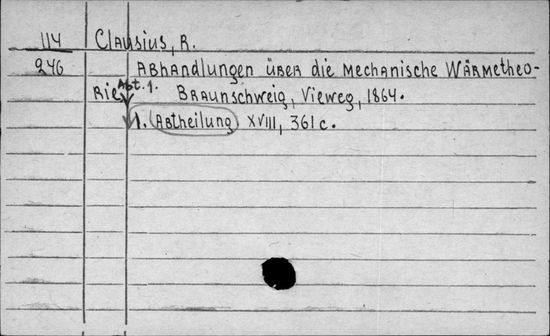 114 Clausius, R.
246 Abhandlungen über die mechanische Wärmetheo-
rie Abt. 1. Braunschweig, Vieweg, 1864.
1. Abtheilung XVIII, 361 c.